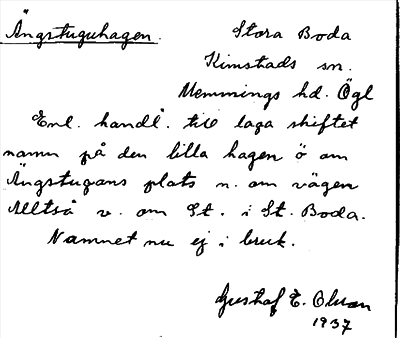 Ängstuguhagen. Stora Boda
Kimstads sn.
Memmings hd. Ögl
Enl. handl. till laga skiftet
namn på den lilla hagen ö om
Ängstugans plats n. om vägen
Alltså v. om St. i St. Boda.
Namnet nu ej i bruk.
Gustaf E. Olsson
1937